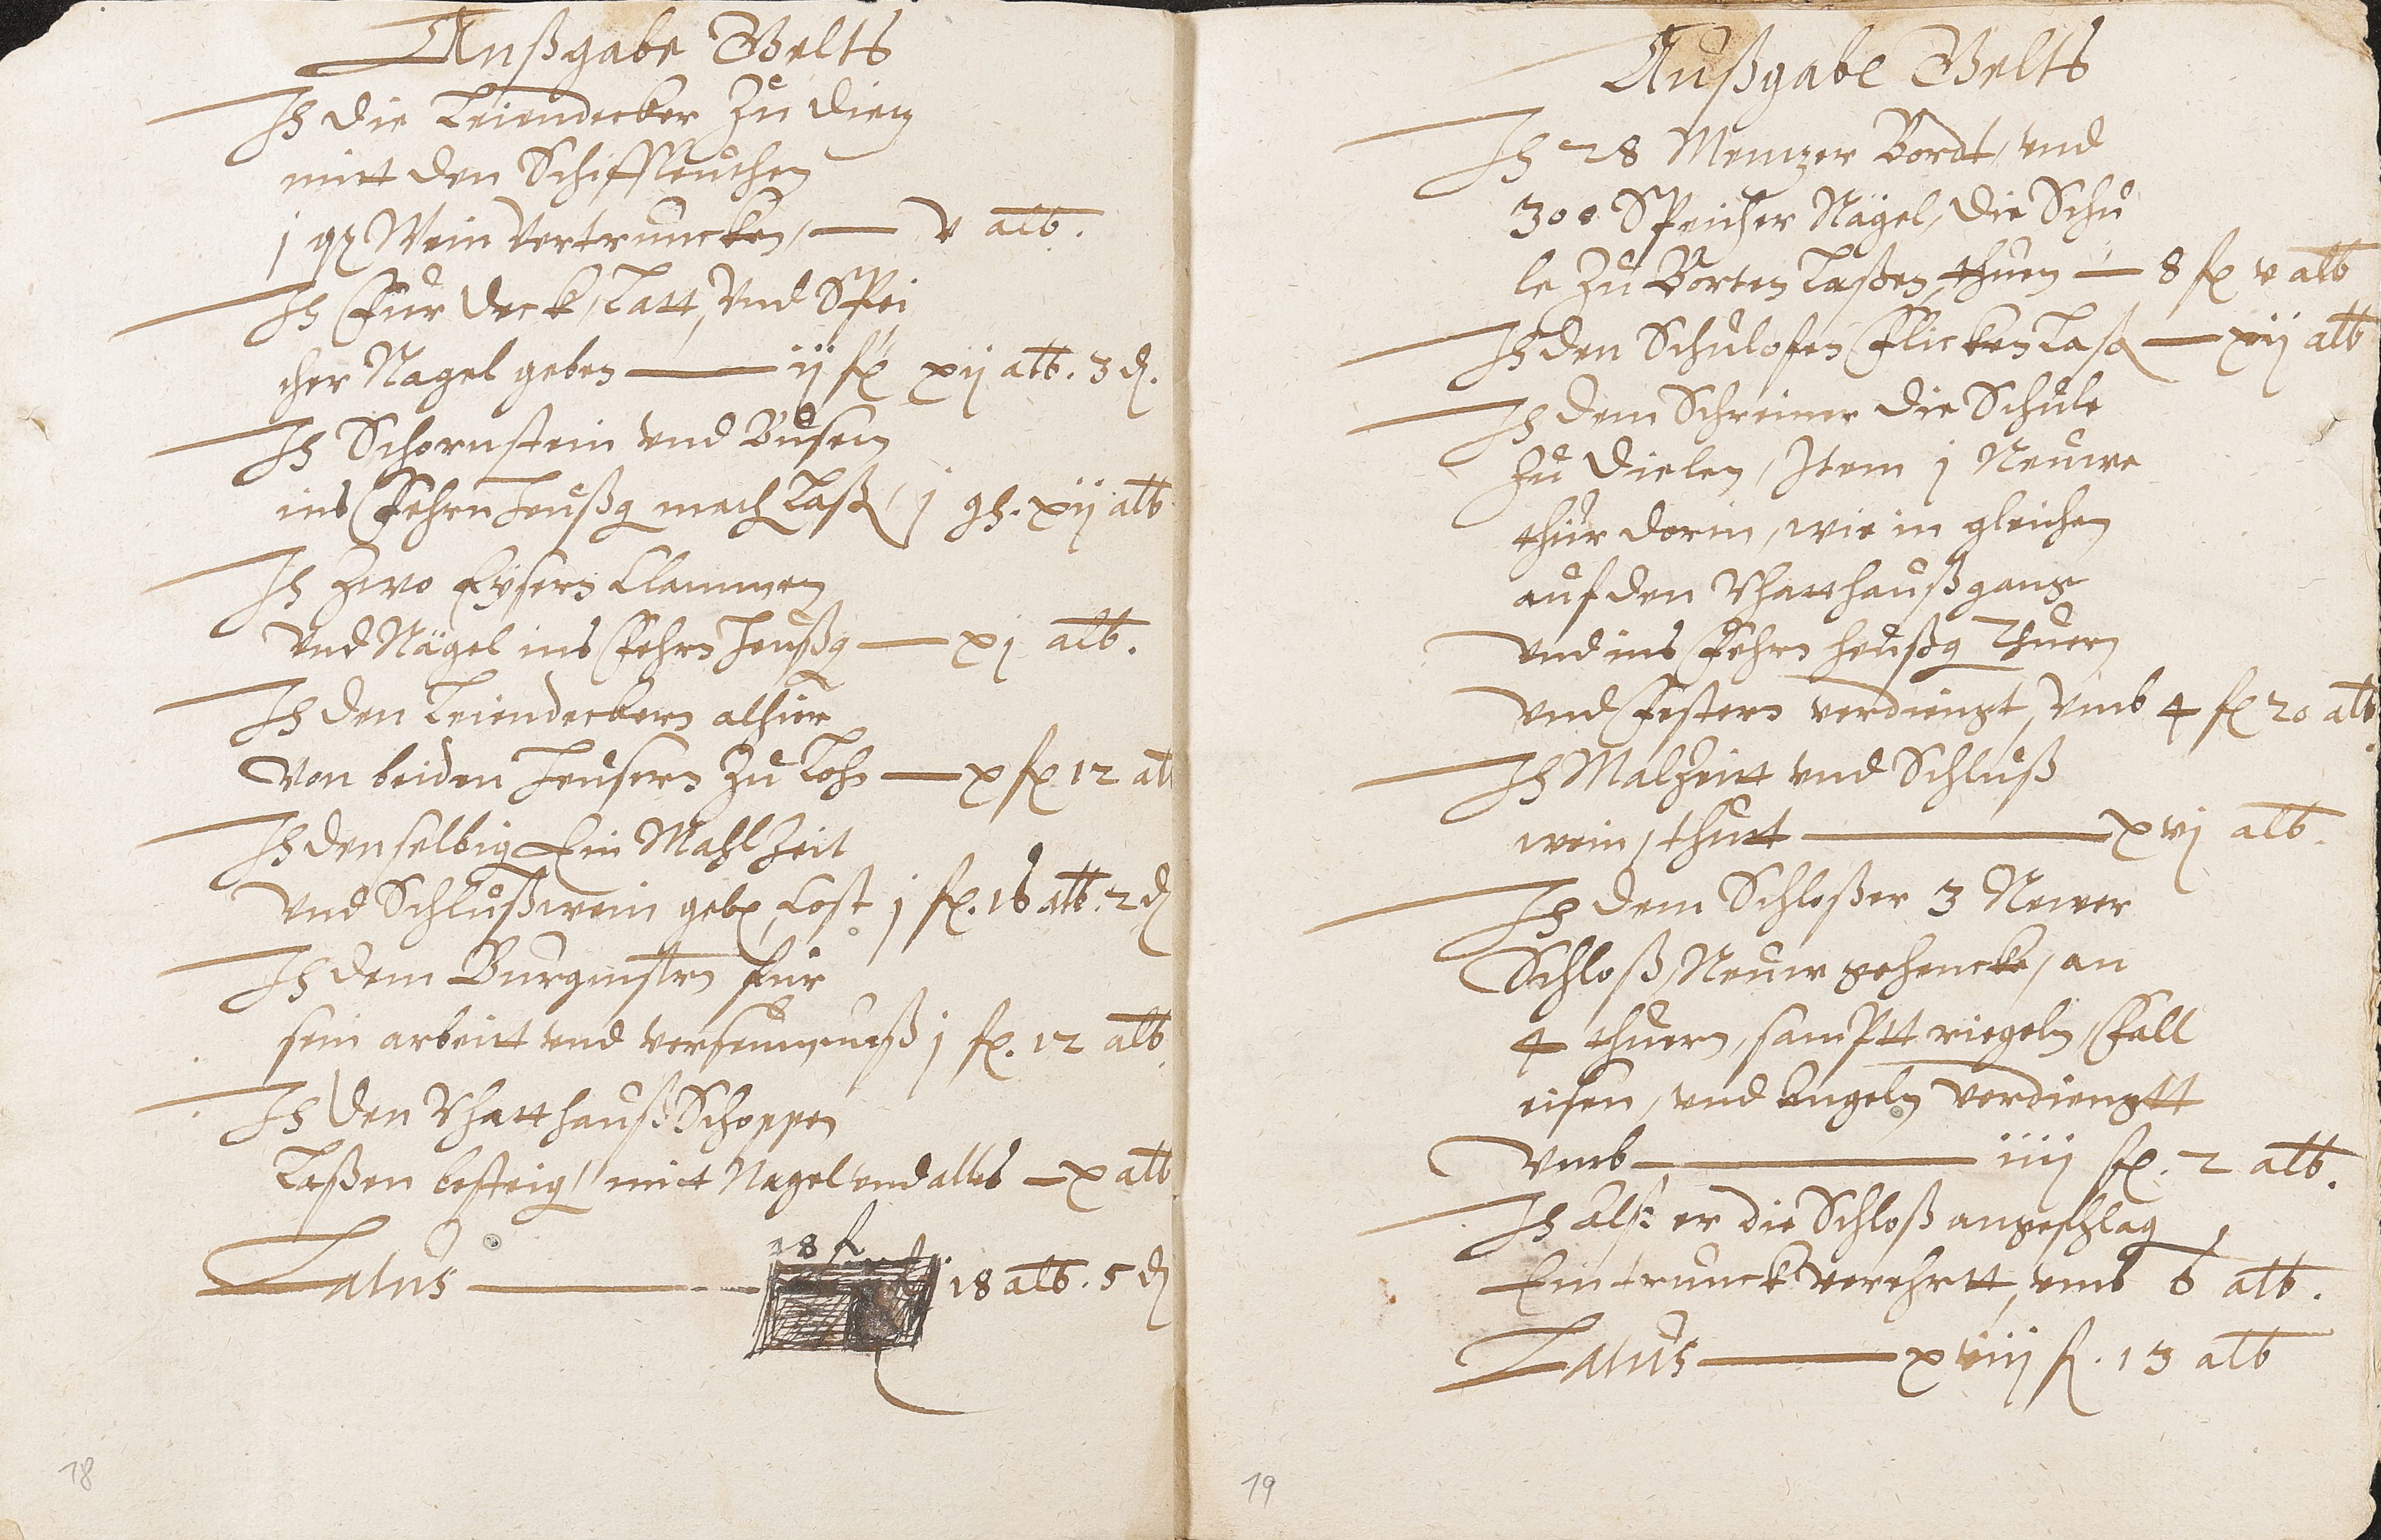 Außgabe Gelts
It die Leiendecker Zu Dietz
mitt den Schiffleuthen
j qz Wein vertruncken, — v alb.
It Fur Deck, Latt, Vnd Spei
cher Nagel geben — ij fl xij alb. 3 d.
It Schornstein vnd Busem
ins Fehrn heußg mach Laß, j gh. xij alb
It Zwo Eysern Clammen
Vnd Nägel ins Fehrn heußg — xj alb.
It den Leiendeckern alhier
Von beiden heusern Zu Lohn — x fl 12 alb
It denselbig Ein Mahl Zeit
Vnd Schlußwein geben, Cost j fl. 16 alb. 2 d
It dem Burgmstrn fur
sein arbeitt vnd verseumnuß j fl. 12 alb
It den Rhatthauß Schoppen
Laßen besteig, mit Nagel vnd alles — x alb
Latus — 18 fl 18 alb. 5 d
18
Außgabe Gelts
It 28 Mentzer Bordt, vnd
300 Speicher Nägel, die Schu
le Zu Borten Laßen thuen — 8 fl v alb
It den Schulofen Flicken Laß — xij alb
It dem Schreiner die Schule
Zu Dielen, Item j Neuwe
thür dorin, wie in gleichen
auf den Rhatthauß gang
vnd ins Fehrn heußg Thuern
vnd Festern verdiengt, Vmb 4 fl 20 alb.
It Malzeitt vnd Schluß
wein, thutt — xvj alb.
It dem Schloßer 3 Newer
Schloß, Neuw gehencke, an
4 thuern, samptt riegeln, Fall
eisen, vnd Angeln verdiengtt
Vmb — iiij fl. 2 alb.
It Alß er die Schloß angeschlag
Ein trunck verehrtt, vmb 6 alb.
Latus — xviij fl. 13 alb
19